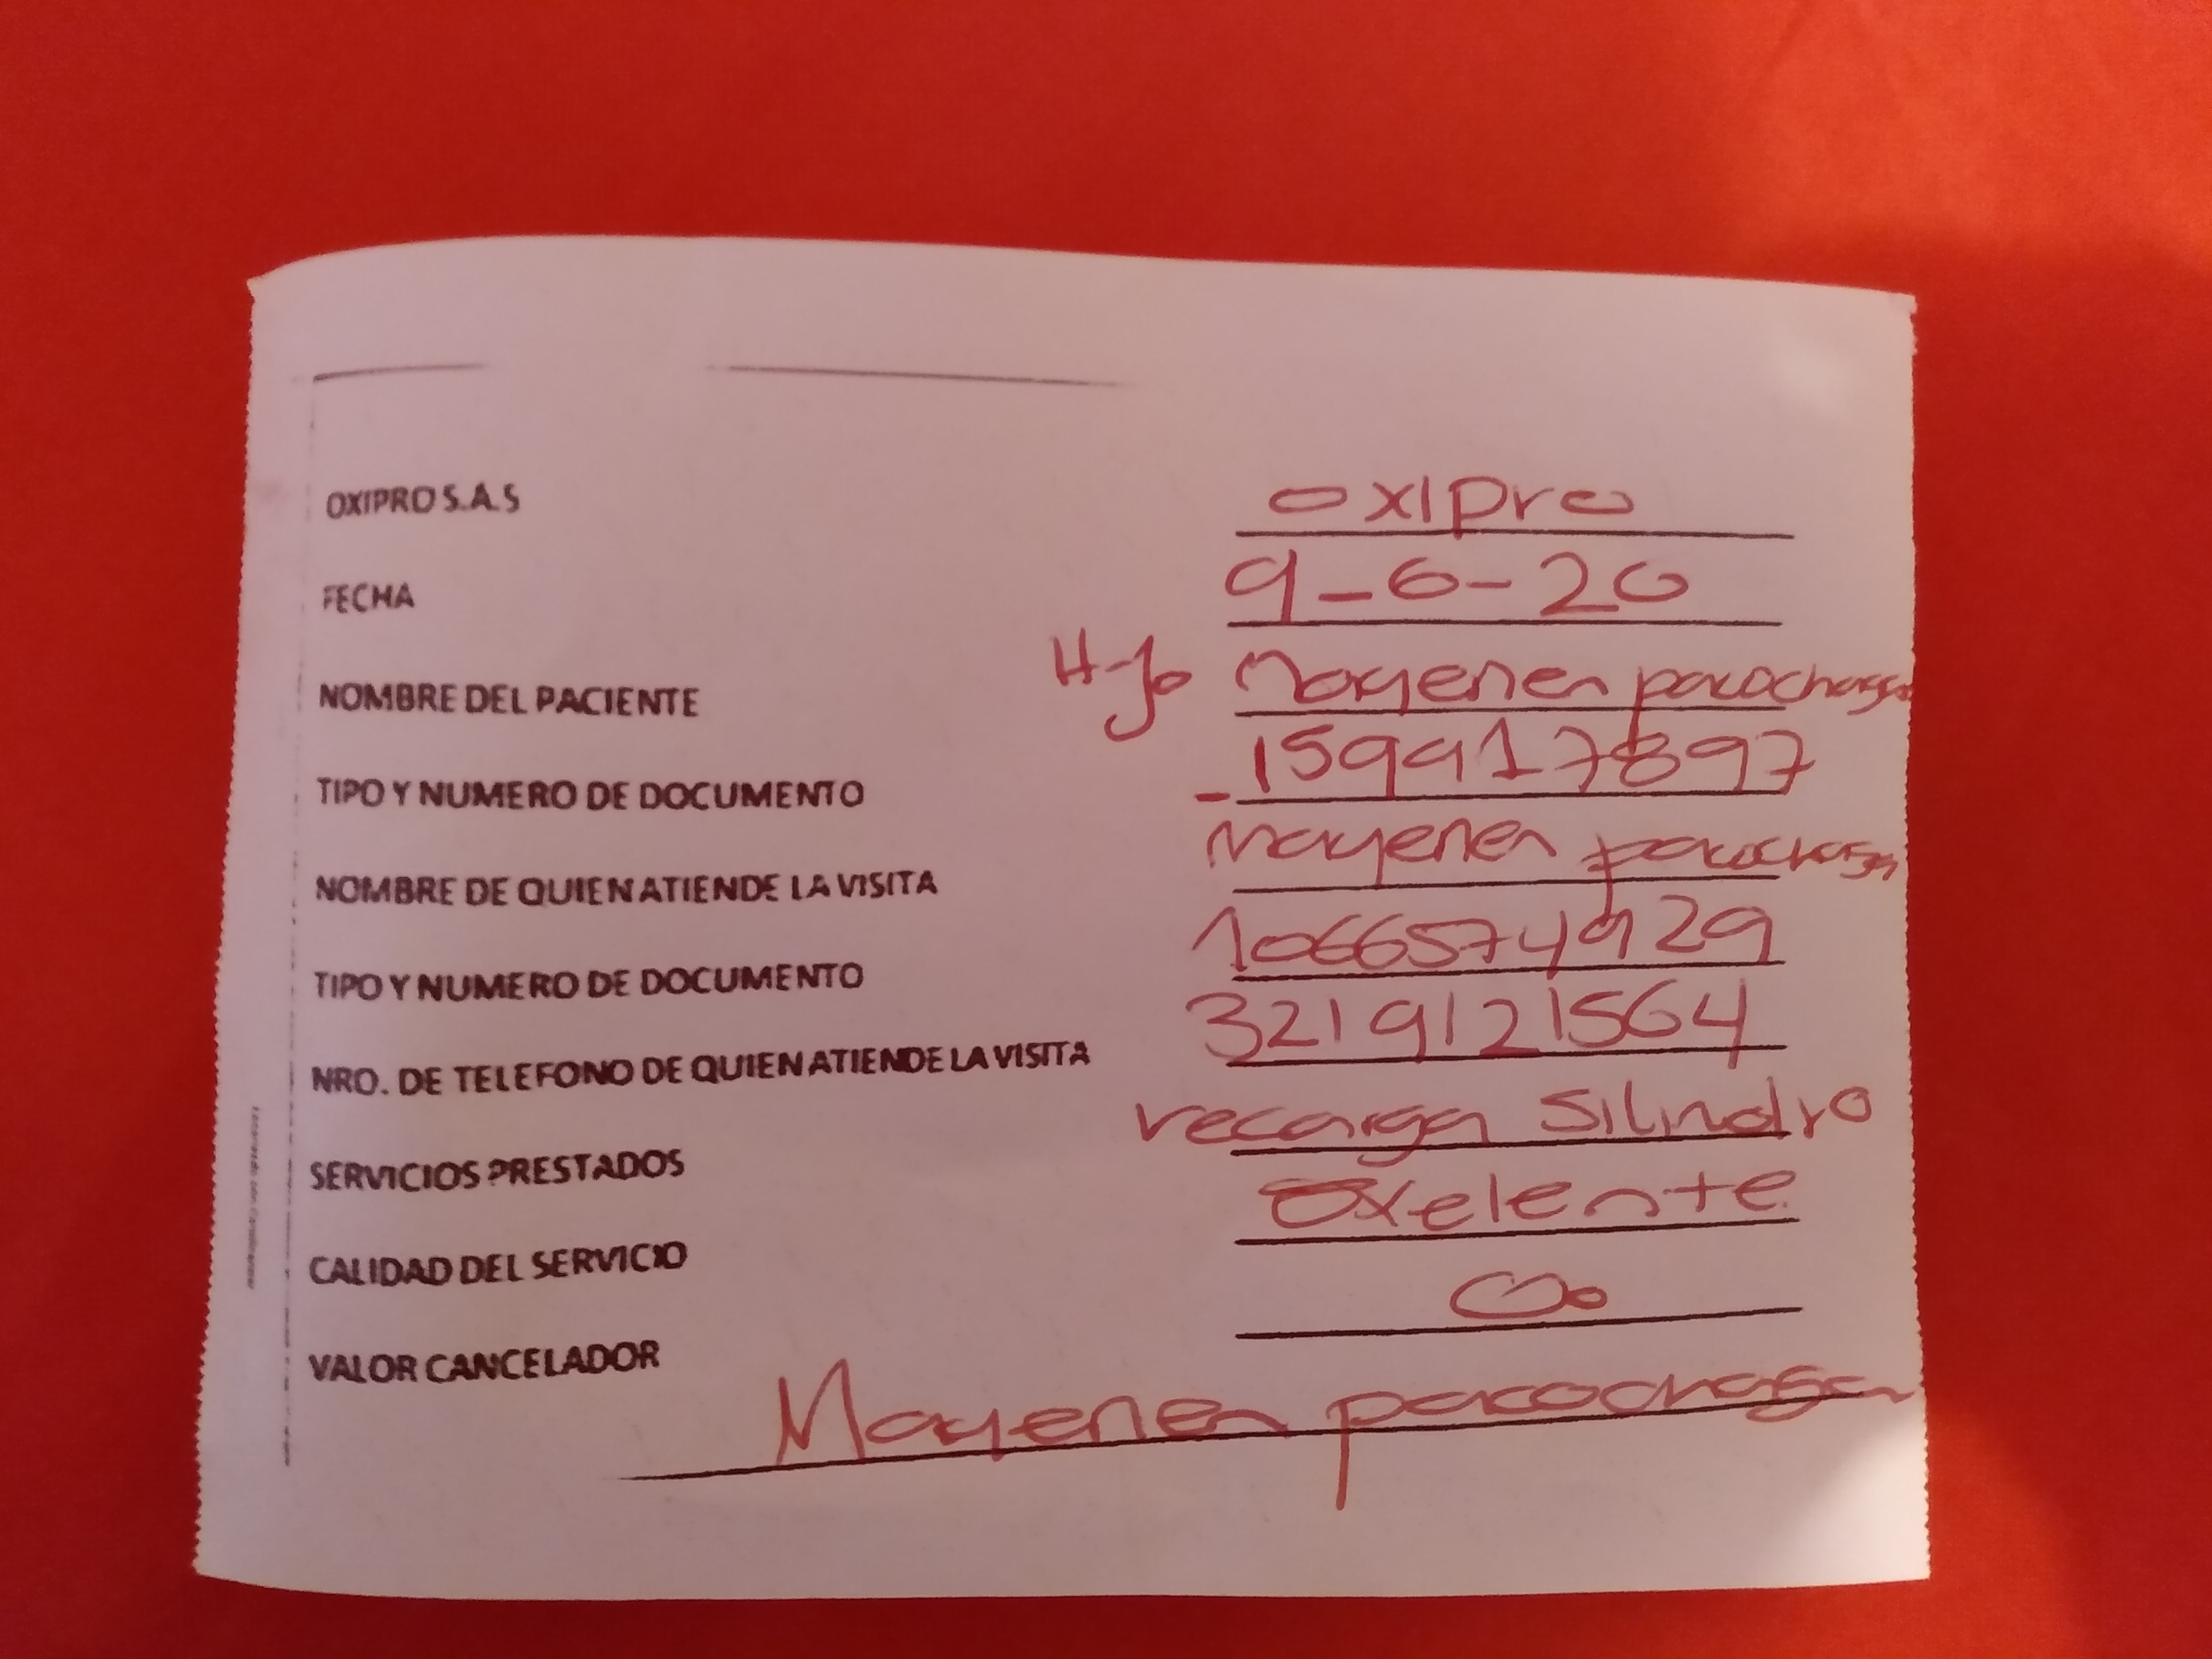 OXIPRO S.A.S oxipro
FECHA 9-6-20
NOMBRE DEL PACIENTE Hijo Mayenen pacochaga
TIPO Y NUMERO DE DOCUMENTO -1599917897
NOMBRE DE QUIEN ATIENDE LA VISITA Mayenen pacochaga
TIPO Y NUMERO DE DOCUMENTO 1066574929
NRO. DE TELEFONO DE QUIEN ATIENDE LA VISITA 3219121564
SERVICIOS PRESTADOS recarga Silindro
CALIDAD DEL SERVICIO Exelente
VALOR CANCELADOR
Mayenen pacochaga